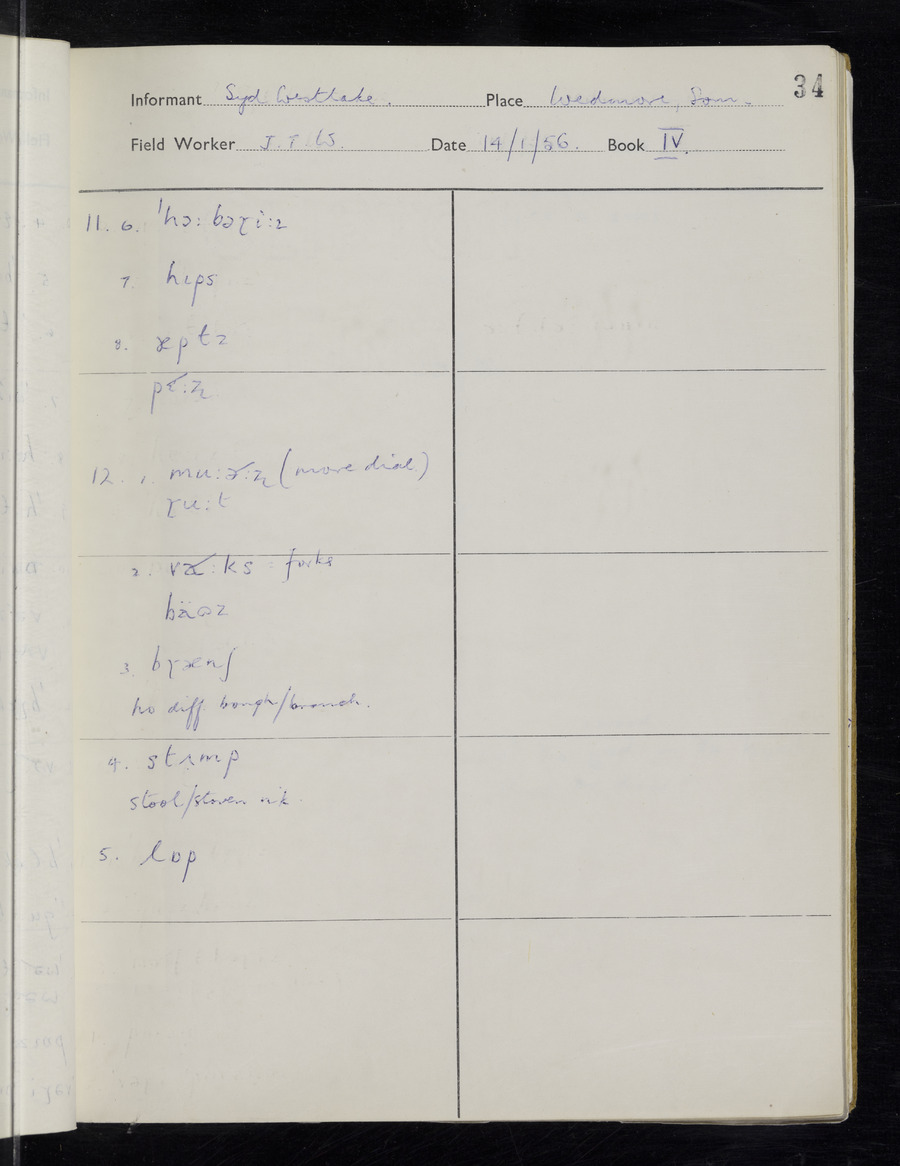 34
Informant Syd Westlake. Place Wedmore, Som.
Field Worker J.T.W. Date 14/1/56. Book IV.
11. 6. ˈhɔ: bəɽi:z
7. hɪps
8. æptz
pɛ˞:ʐ
12. 1. mu:ə˞:ʐ (more dial.)
ɽu:t
2. væ˞:ks = forks
bäʊz
3. bɽænʃ
no diff. bough/branch.
4. stʌmp
stool/stoven n.k.
5. lɒp